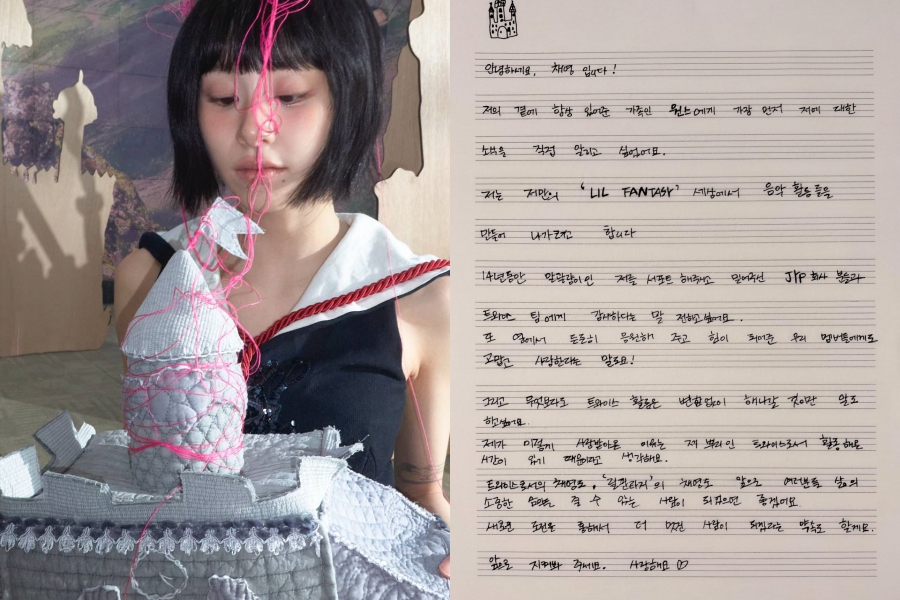 안녕하세요, 채영 입니다!
저의 곁에 항상 있어준 가족인 원스에게 가장 먼저 저에 대한
소식을 직접 알리고 싶었어요.
저는 저만의 'LIL FANTASY' 세상에서 음악 활동들을
만들어 나가려고 합니다
14년동안 말괄량이인 저를 서포트 해주시고 믿어주신 JYP 회사 분들과
트와이스 팀에게 감사하다는 말 전하고싶어요.
또 옆에서 든든히 응원해 주고 힘이 되어준 우리 멤버들에게도
고맙고 사랑한다는 말도요!
그리고 무엇보다도 트와이스 활동은 변함없이 해나갈 것이란 말도
하고싶어요.
제가 이렇게 사랑받아온 이유는 제 뿌리인 트와이스로서 활동해온
시간이 있기 때문이라고 생각해요.
트와이스로서의 채영도, '릴판타지'의 채영도 앞으로 여러분들 삶의
소중한 을 줄 수 있는 사람이 되었으면 좋겠어요.
새로운 도전을 통해서 더 멋진 사람이 되겠다는 약속도 할게요.
앞으로 지켜봐 주세요. 사랑해요 ♡